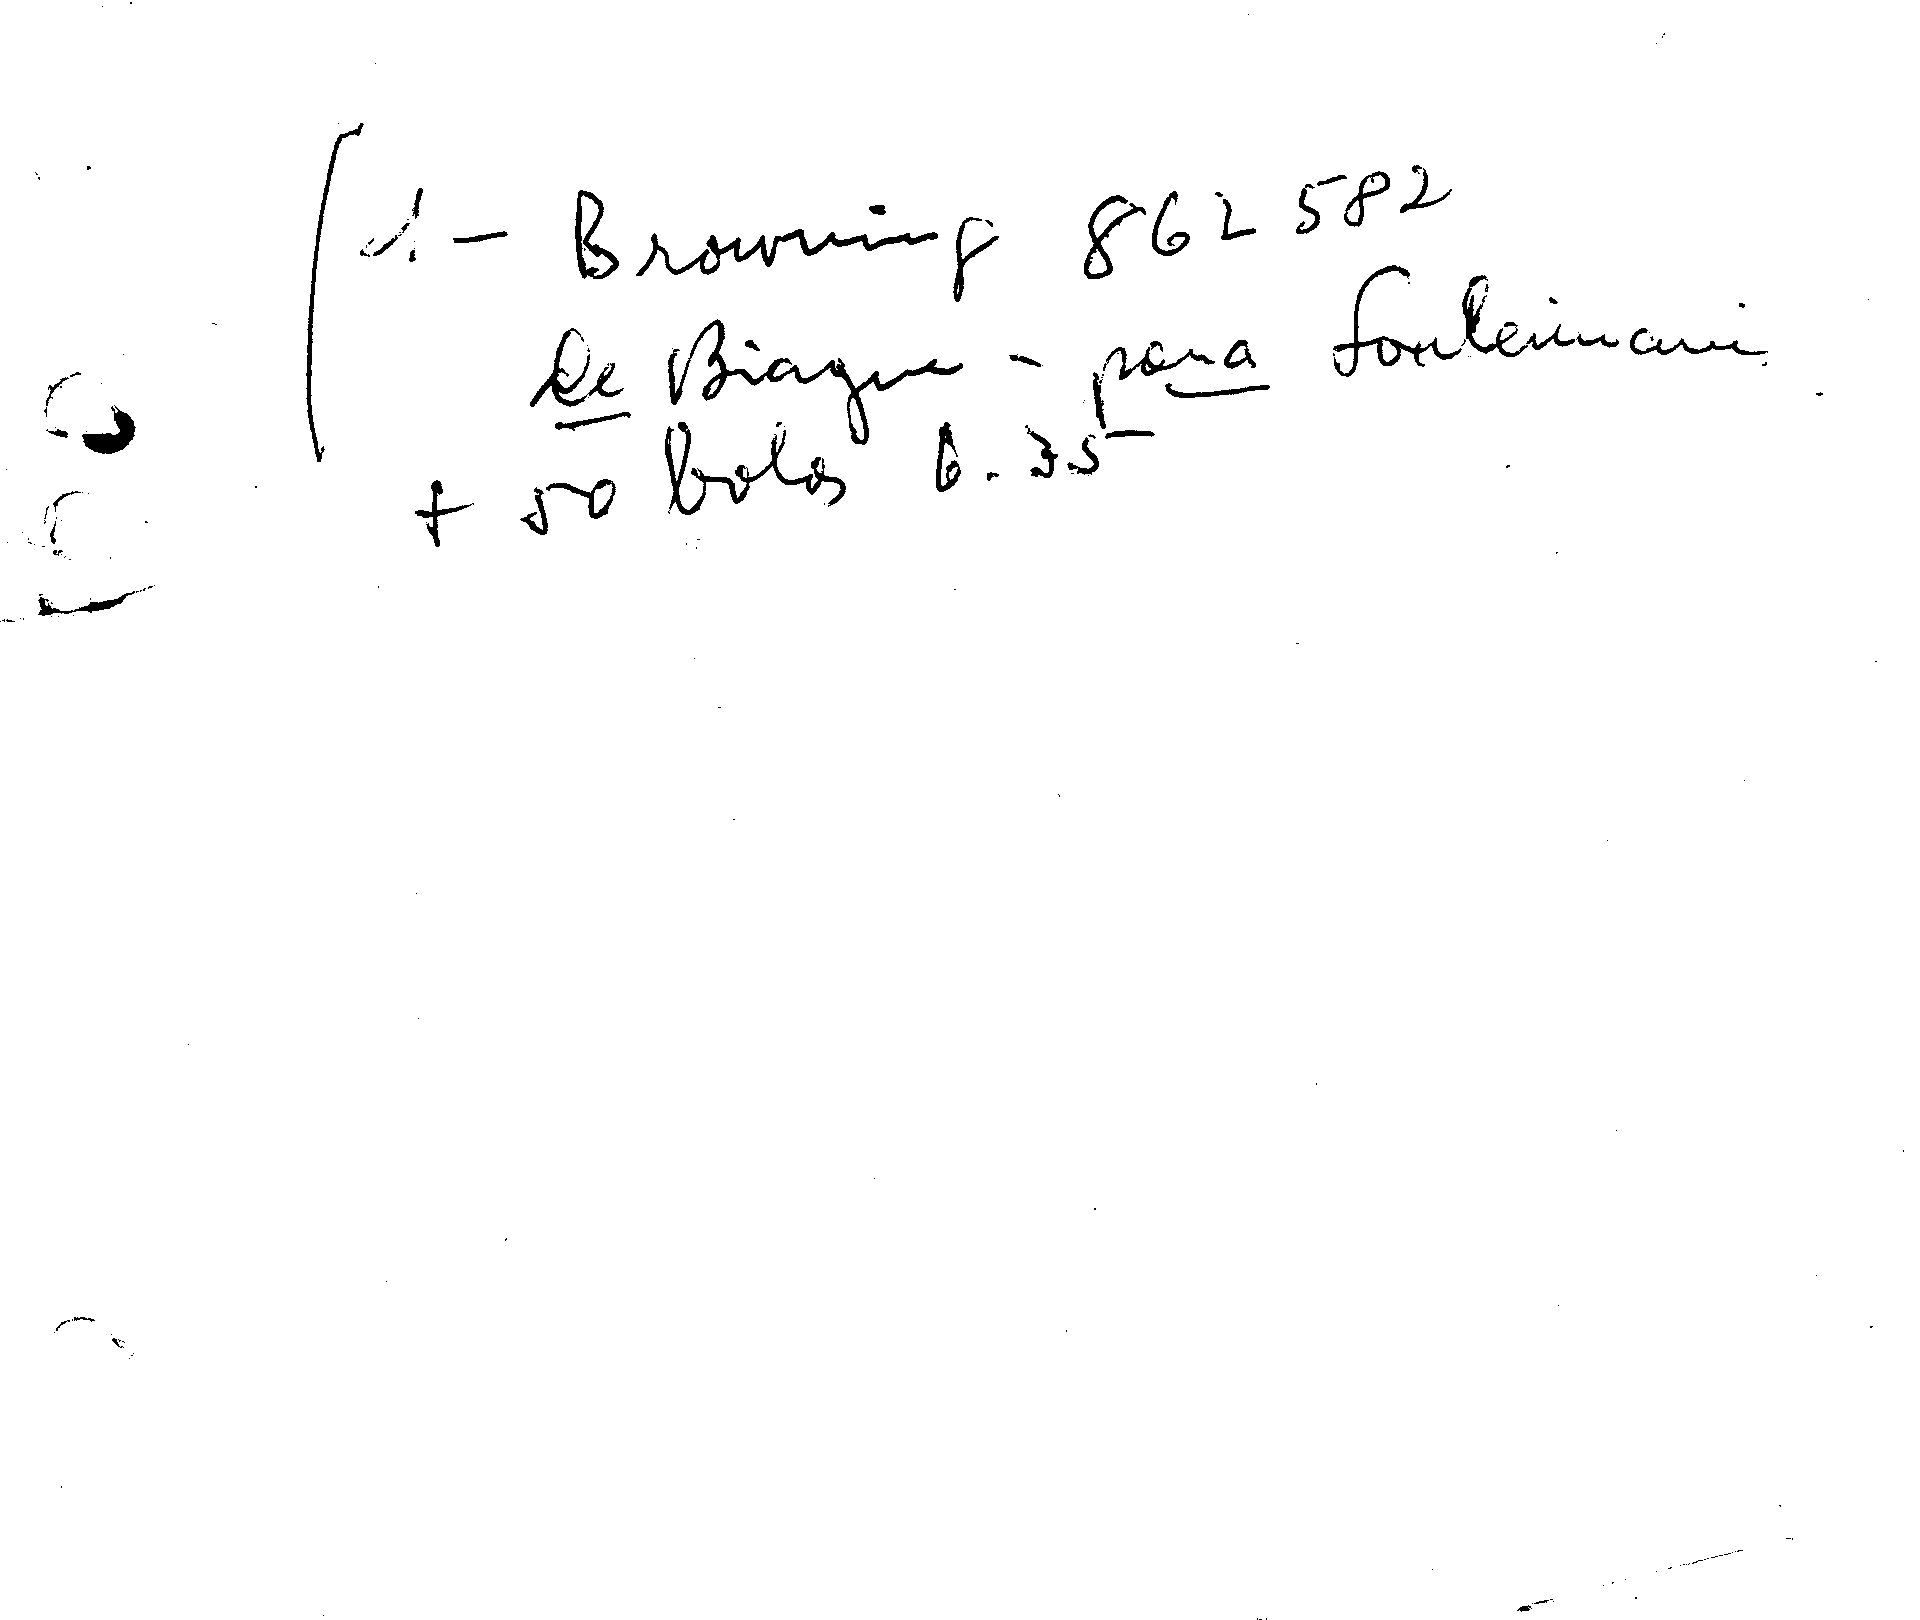 1 - Browning 862 582
de Biague - para Souleimane
+ 50 balas 6.35